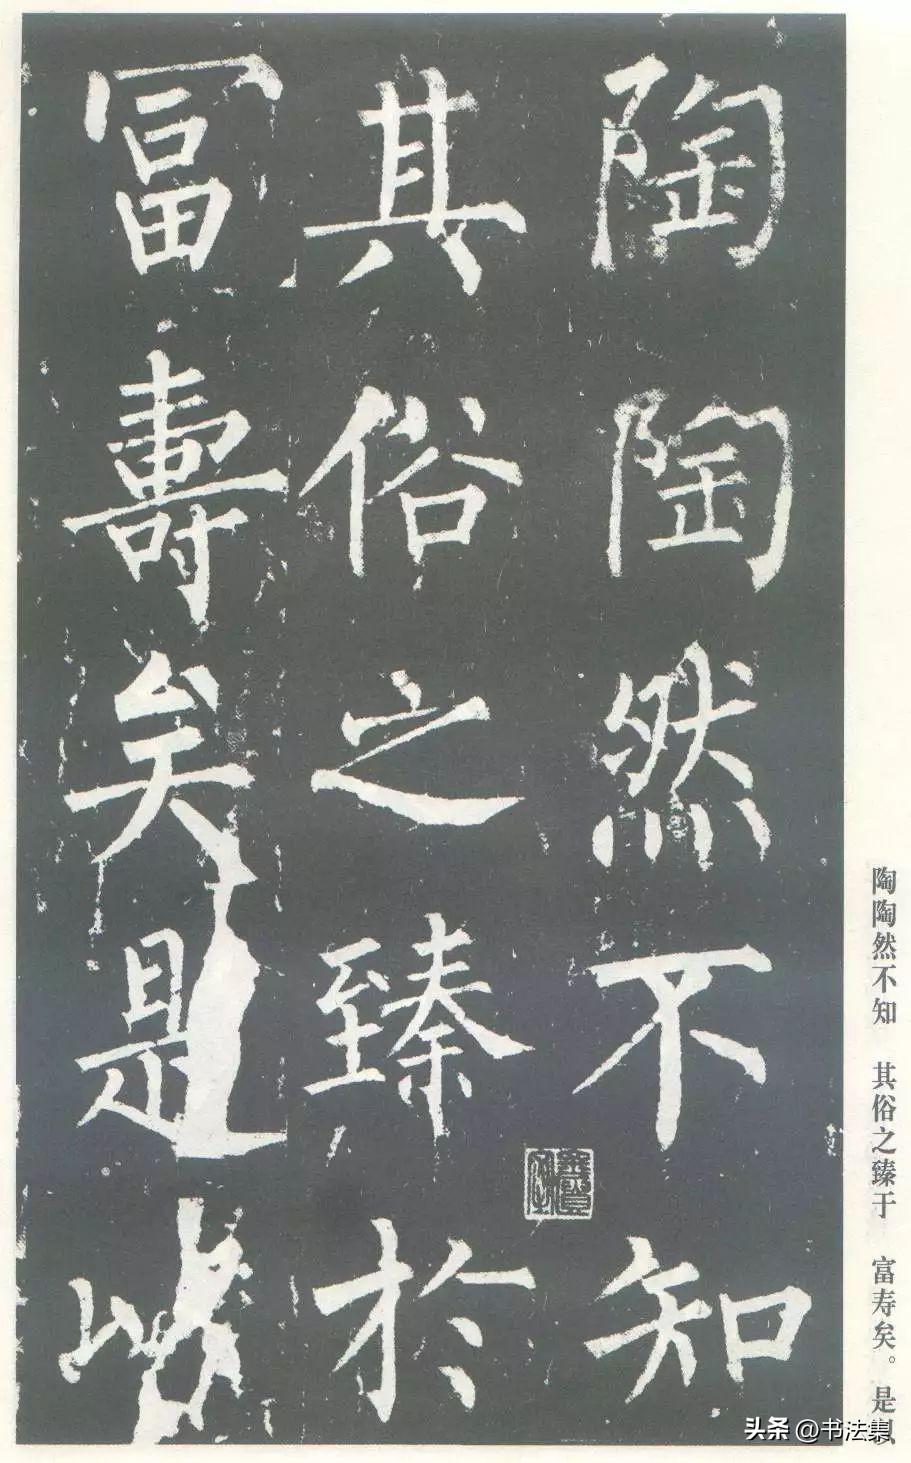 陶陶然不知
其俗之臻於
冨壽矣是以
陶陶然不知　其俗之臻于　富寿矣。是以
头条 @书法集